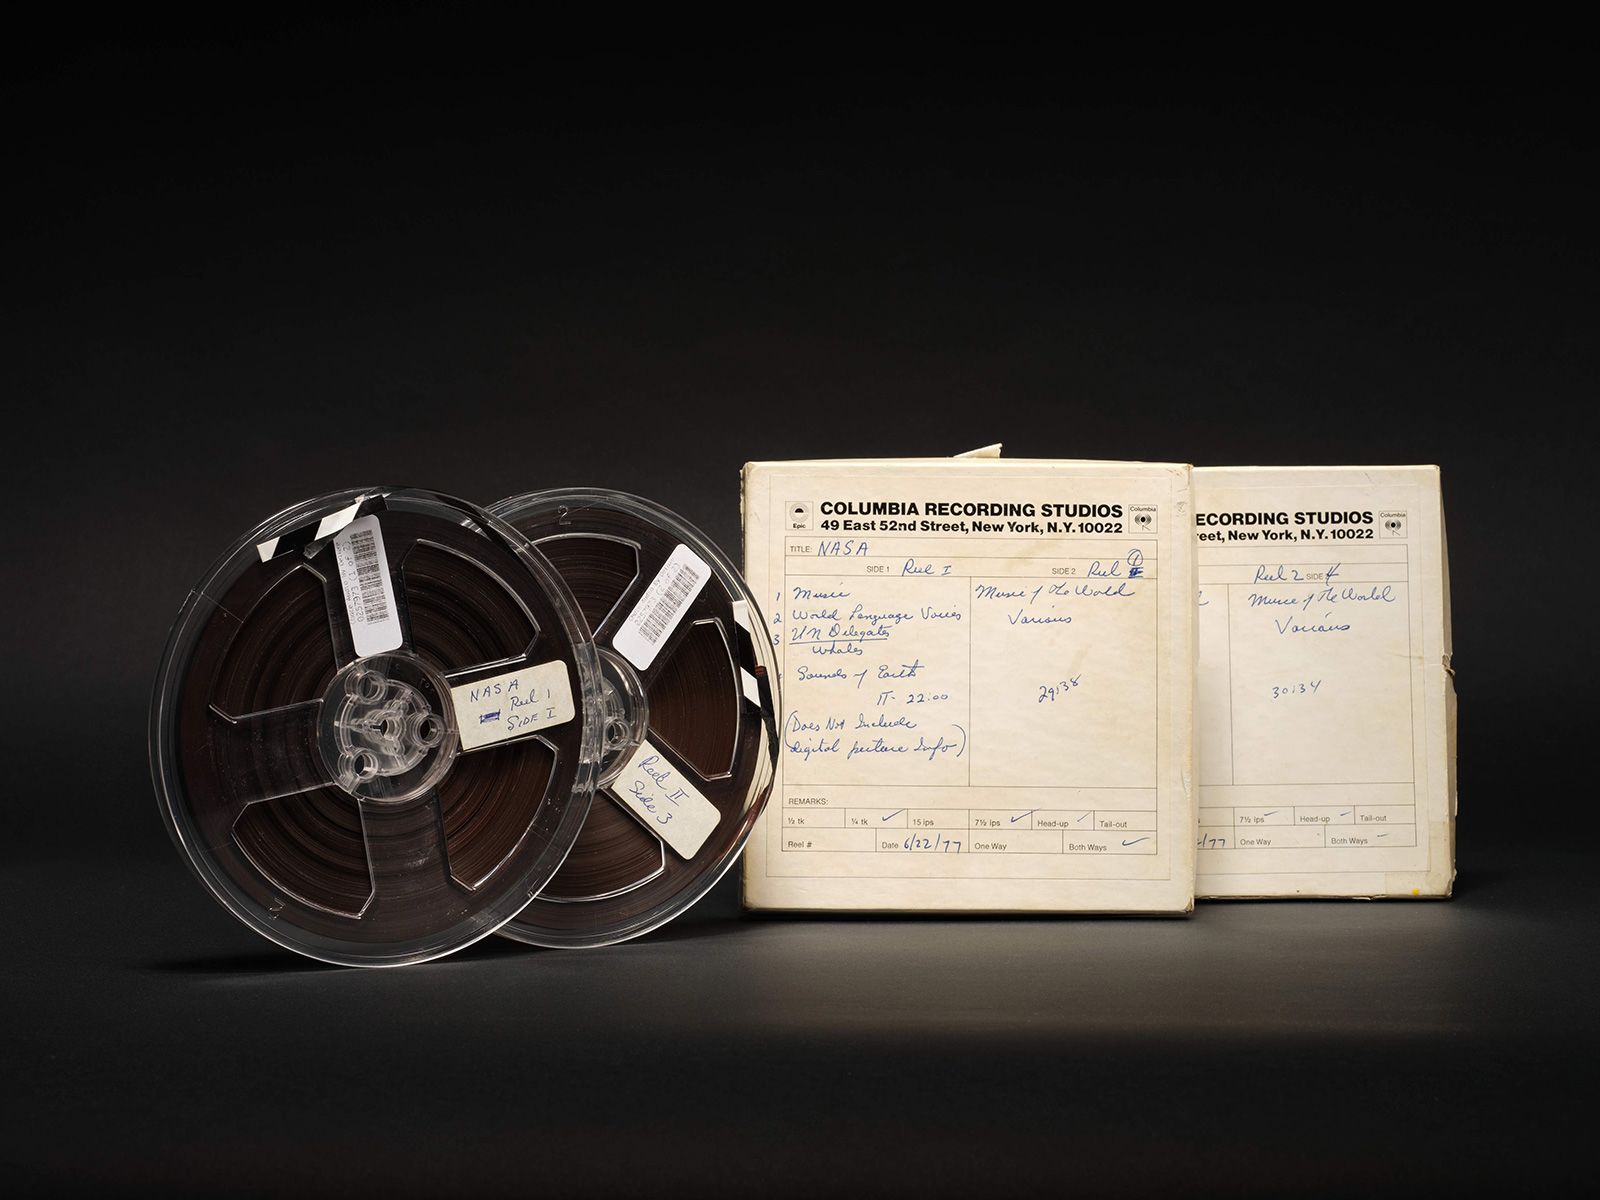 NASA
Reel 1
SIDE I
Reel II
Side 3
2
Epic
COLUMBIA RECORDING STUDIOS
49 East 52nd Street, New York, N.Y. 10022
Columbia
TITLE: NASA
SIDE 1 Reel I
SIDE 2 Reel 1
1 Music
2 World Language Voices
3 UN Delegates
Whales
Sounds of Earth
TT- 22:00
(Does Not Include
digital picture Info)
Music of The World
Various
29:38
REMARKS:
½ tk ¼ tk ✓ 15 ips 7½ ips ✓ Head-up ✓ Tail-out
Reel # Date 6/22/77 One Way Both Ways ✓
ECORDING STUDIOS
reet, New York, N.Y. 10022
Columbia
Reel 2 SIDE 4
Music of The World
Various
30:34
7½ ips Head-up Tail-out
/77 One Way Both Ways